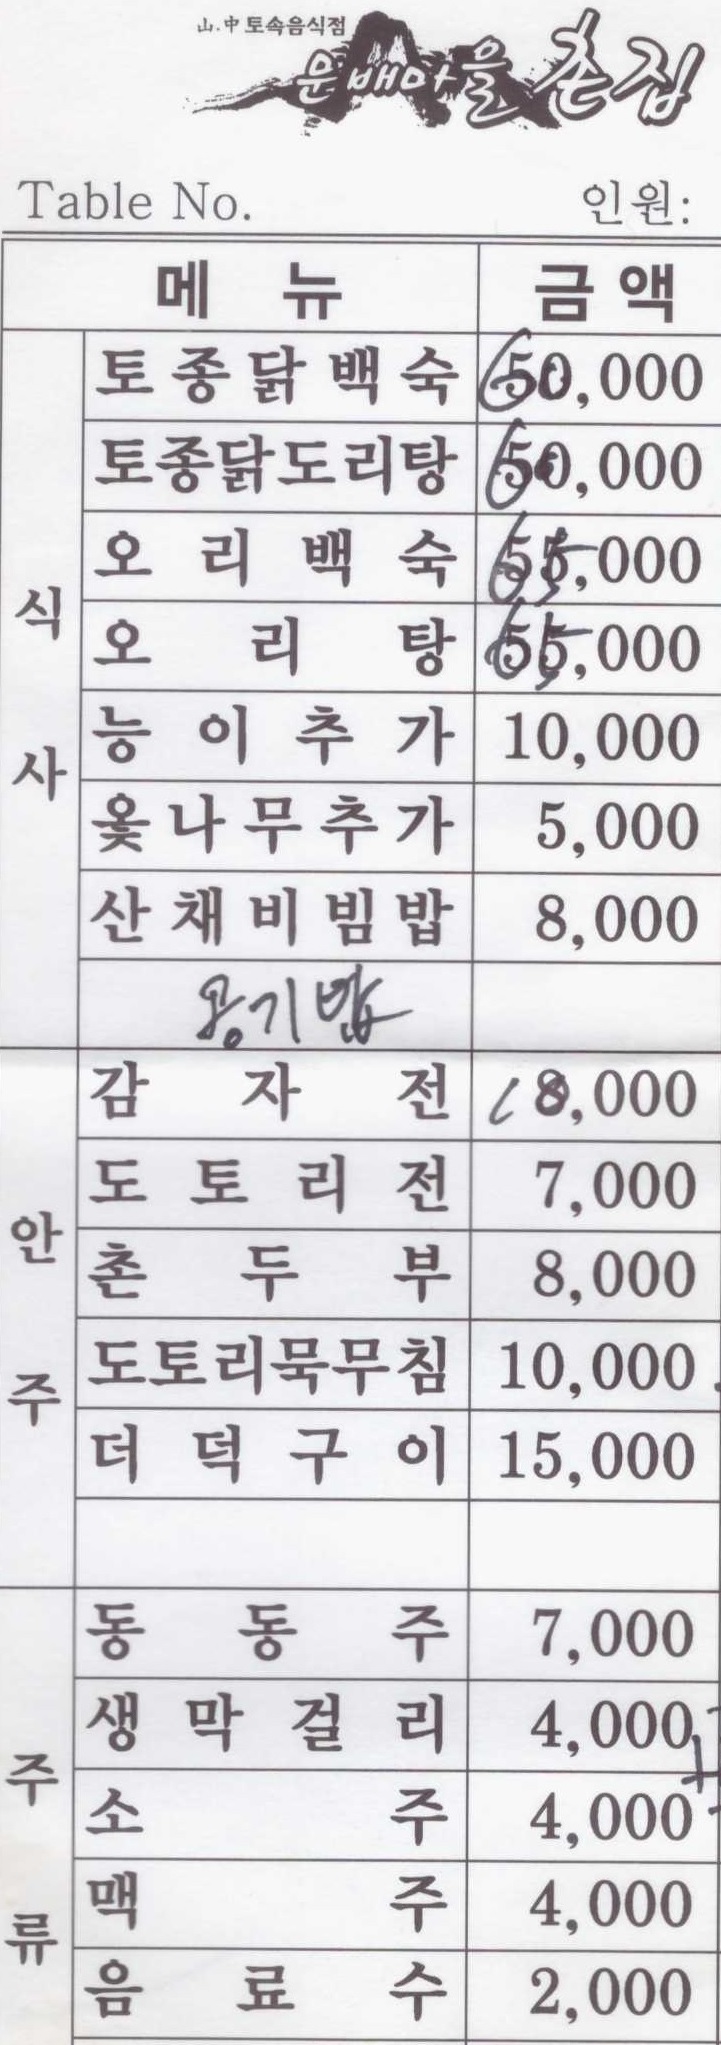 山.中 토속음식점
문배마을 촌집
Table No. 인원:
메 뉴 금 액
식 사
토종닭백숙 60,000
토종닭도리탕 60,000
오리백숙 65,000
오리탕 65,000
능이추가 10,000
옻나무추가 5,000
산채비빔밥 8,000
공기밥
안 주
감자전 10,000
도토리전 7,000
촌두부 8,000
도토리묵무침 10,000
더덕구이 15,000
주 류
동동주 7,000
생막걸리 4,000
소주 4,000
맥주 4,000
음료수 2,000